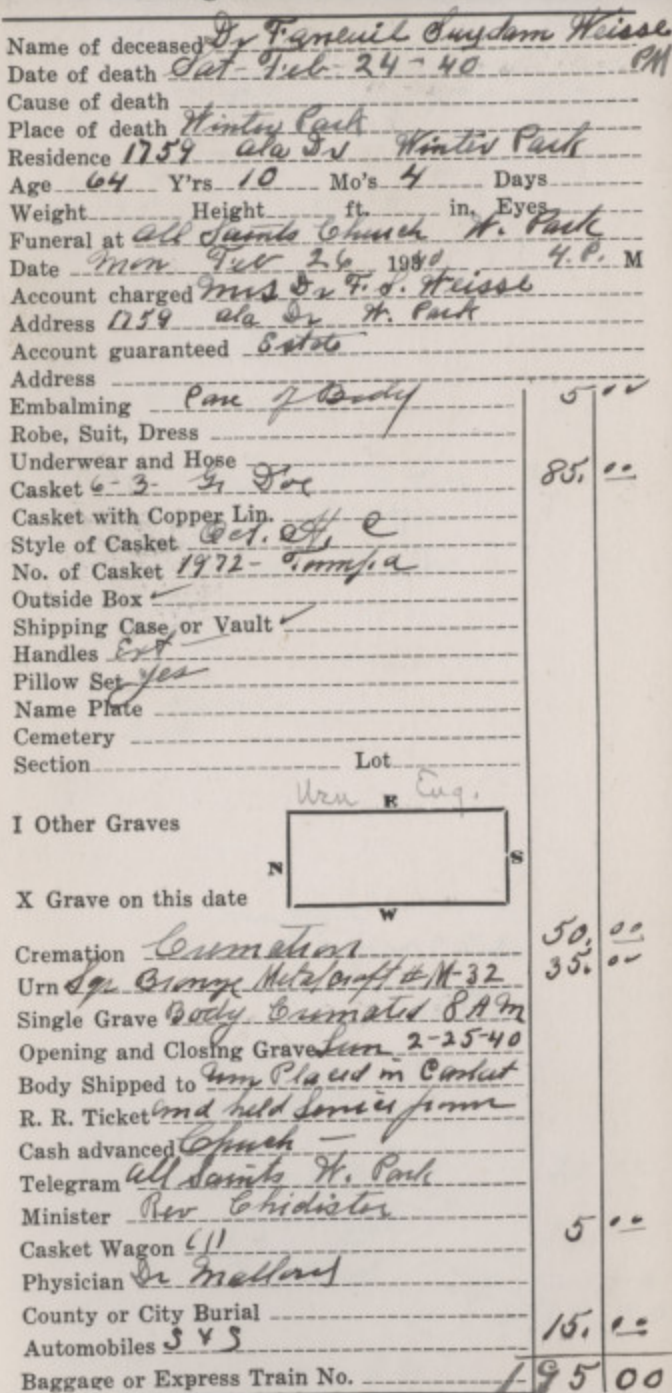 Name of deceased Dr Faneuil Suydam Weisse
Date of death Sat - Feb - 24 - 40 PM
Cause of death
Place of death Winter Park
Residence 1759 Ala Dr Winter Park
Age 64 Y'rs 10 Mo's 4 Days
Weight Height ft. in. Eyes
Funeral at All Saints Church W. Park
Date Mon Feb 26 1940 4. P. M
Account charged Mrs Dr F. S. Weisse
Address 1759 Ala Dr W. Park
Account guaranteed Estate
Address
Embalming Care of Body 5 00
Robe, Suit, Dress
Underwear and Hose
Casket 6-3- Doe 85. 00
Casket with Copper Lin.
Style of Casket Oct.
No. of Casket 1972 - Tampa
Outside Box ✓
Shipping Case or Vault ✓
Handles Ext
Pillow Set yes
Name Plate
Cemetery
Section Lot
Urn Eng.
E
I Other Graves
N S
X Grave on this date
W
Cremation Cremation 50. 00
Urn Sqr Bronze Metalcraft # M-32 35. 00
Single Grave Body Cremated 8 AM
Opening and Closing Grave Sun 2-25-40
Body Shipped to Urn Placed in Casket
R. R. Ticket and held Service from
Cash advanced Church -
Telegram All Saints W. Park
Minister Rev Chidister
Casket Wagon 5 00
Physician Dr Mallory
County or City Burial
Automobiles S & S 15. 00
Baggage or Express Train No. 195 00